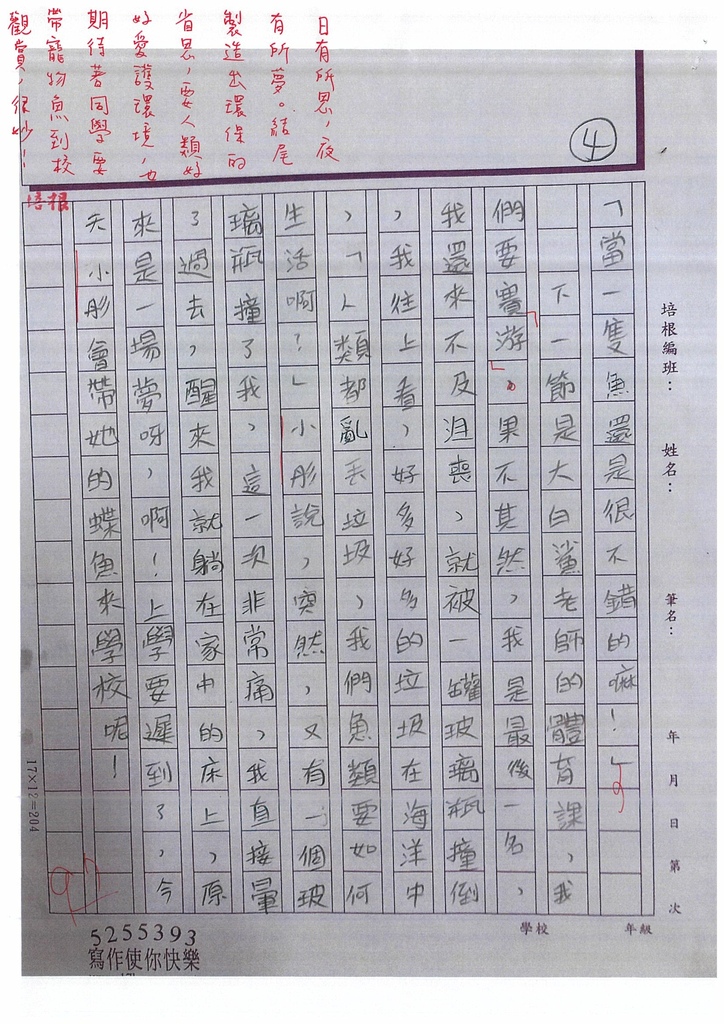 日有所思，夜
有所夢。結尾
製造出環保的
省思，要人類好
好愛護環境，也
期待著同學要
帶寵物魚到校
觀賞，很妙！
培根
④
培根編班： 姓名： 筆名： 年 月 日 第 次
學校 年級
「當一隻魚還是很不錯的嘛！」
下一節是大白鯊老師的體育課，我
們要賽游。果不其然，我是最後一名，
我還來不及沮喪，就被一罐玻璃瓶撞倒
，我往上看，好多好多的垃圾在海洋中
，「人類都亂丟垃圾，我們魚類要如何
生活啊？」小彤說，突然，又有一個玻
璃瓶撞了我，這一次非常痛，我直接暈
了過去，醒來我就躺在家中的床上，原
來是一場夢呀，啊！上學要遲到了，今
天小彤會帶她的蝶魚來學校呢！
17×12=204
97
5255393
寫作使你快樂